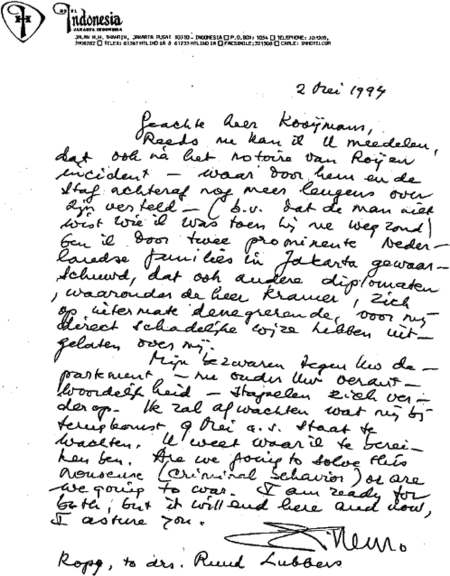 HOTEL
Indonesia
JAKARTA INDONESIA
JALAN M.H. THAMRIN, JAKARTA PUSAT 10310 - INDONESIA P.O. BOX: 1054 TELEPHONE:
TELEX: FACSIMILE: CABLE:
2 Mei 1994
Geachte heer Kooijmans,
Reeds nu kan ik U meedelen,
dat ook na het notoire van Roijen
incident - waar door hem en de
staf achteraf nog meer leugens over
zijn verteld - b.v. dat de man niet
wist wie ik was toen hij me wegzond)
ben ik door twee prominente Neder-
landse families in Jakarta gewaar-
schuwd, dat ook andere diplomaten
, waaronder de heer Kramer, zich
op uitermate denegrerende, voor mij
direct schadelijke wijze hebben uit-
gelaten over mij.
Mijn bezwaren tegen Uw de-
partement - nu onder Uw verant-
woordelijkheid - stapelen zich ver-
der op. Ik zal afwachten wat mij bij
terugkomst 9 Mei a.s. staat te
wachten. U weet waar ik te berei-
ken ben. Are we going to solve this
nonsense (criminal behavior) or are
we going to war. I am ready for
both, but it will end here and now,
I assure you.
to drs. Ruud Lubbers